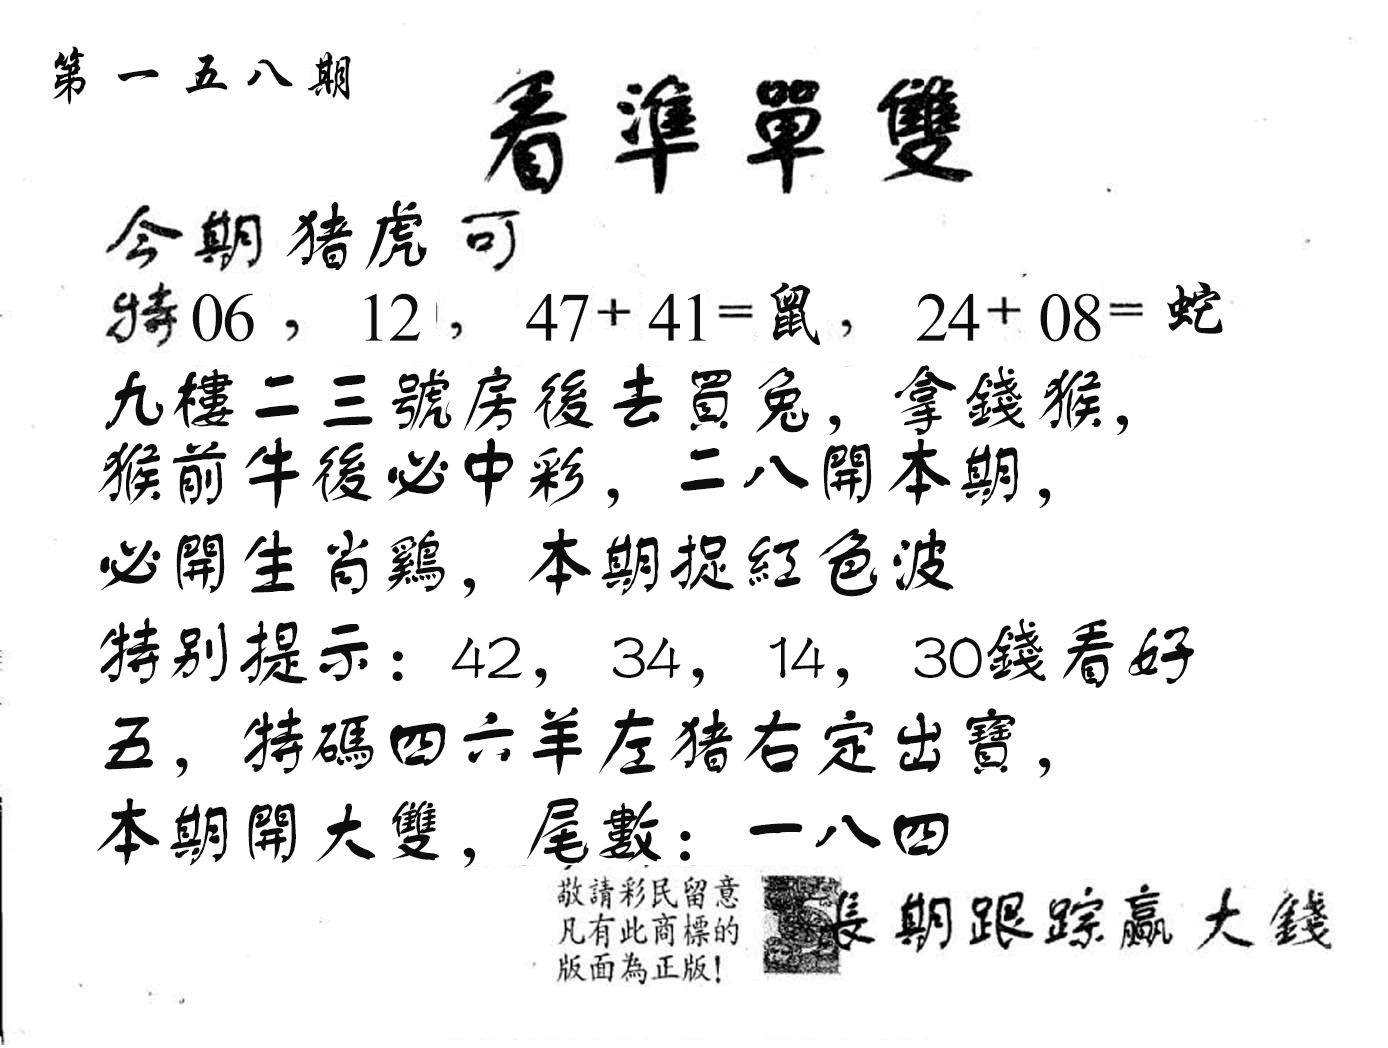 第一五八期
看準單雙
今期猪虎可
特06，12，47+41=鼠，24+08=蛇
九樓二三號房後去買兔，拿錢猴，
猴前牛後必中彩，二八開本期，
必開生肖鷄，本期捉紅色波
特别提示：42，34，14，30錢看好
五，特碼四六羊左猪右定出寶，
本期開大雙，尾數：一八四
敬請彩民留意
凡有此商標的
版面為正版！
長期跟踪贏大錢